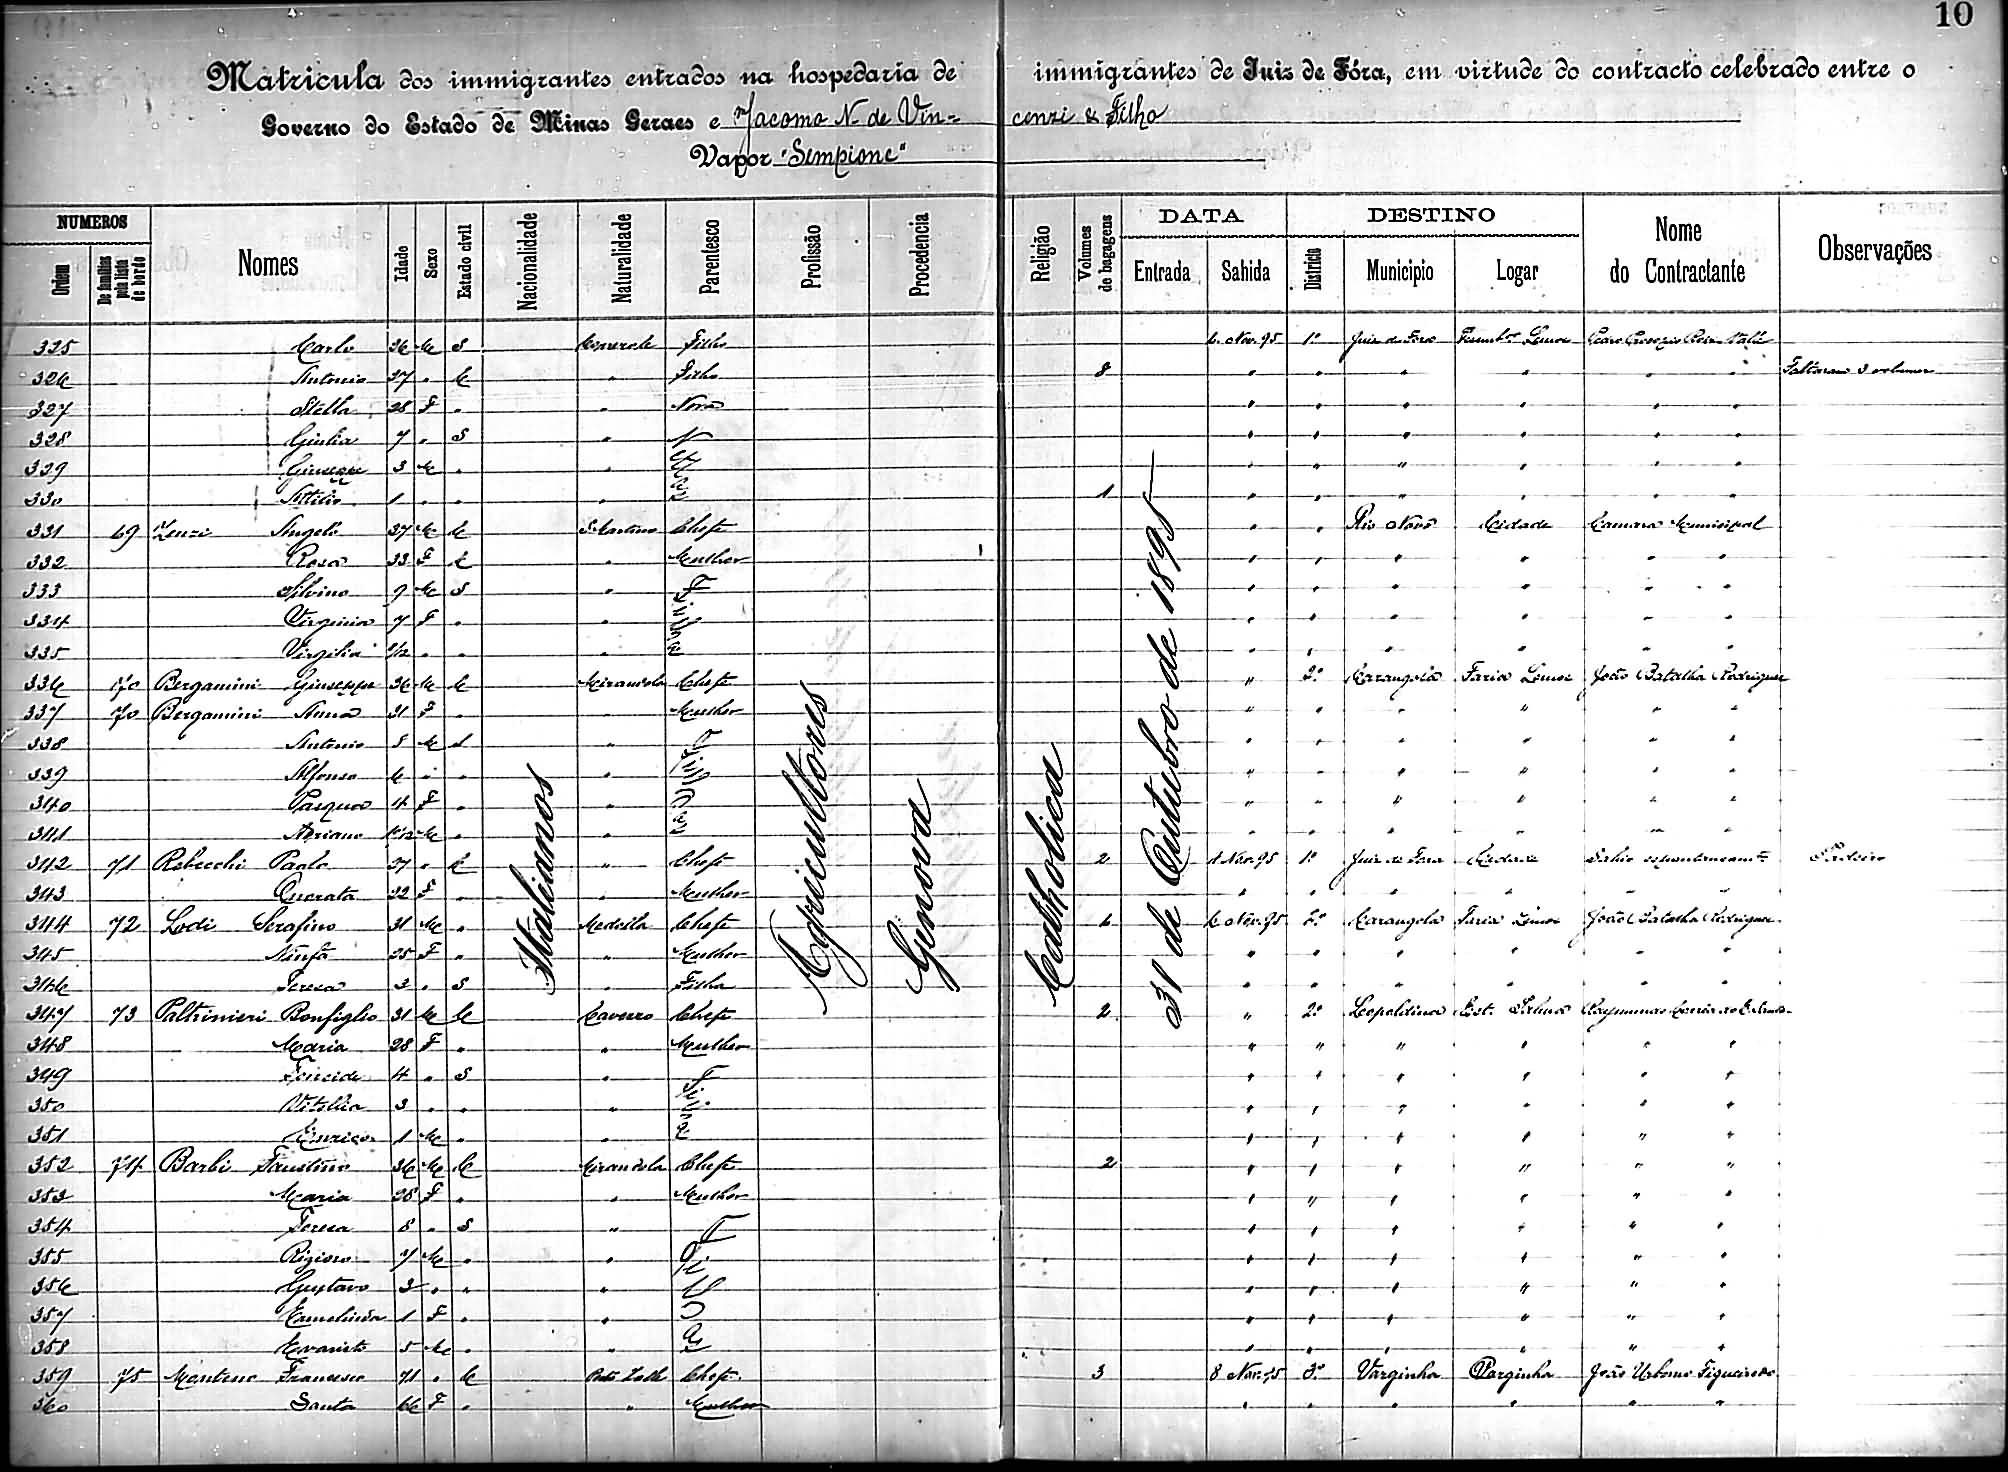 10
Matricula dos immigrantes entrados na hospedaria de immigrantes de Juiz de Fóra, em virtude do contracto celebrado entre o
Governo do Estado de Minas Geraes e Jacomo N. de Vincenzi & Filho
Vapor "Sempione"
NUMEROS Nomes Idade Sexo Estado civil Nacionalidade Naturalidade Parentesco Profissão Procedencia Religião Volumes de bagagens DATA DESTINO Nome do Contractante Observações
Ordem De familias pela lista de bordo Entrada Sahida Districto Municipio Logar
Italianos Agricultores Genova Catholica 31 de Outubro de 1895
325 Carlo 36 M S Filho 6 Nov. 95 1º Juiz de Fora
326 Antonio 37 " C " Filho 8 " " " " " " Faltaram 3 volumes
327 Stella 28 F " " Nora " " " " " "
328 Giulia 7 " S " " " " " " "
329 Giuseppe 3 M " " " " " " "
330 Attilio 1 " " " 1 " " " " " "
331 69 Zenzi Angelo 37 M C S Martino Chefe " " Rio Novo Cidade Camara Municipal
332 Rosa 33 F C " Mulher " " " " " "
333 Silvino 9 M S " " " " " " "
334 Virginia 7 F " " " " " " " "
335 Virgilia " " " " " " " " "
336 70 Bergamini Giuseppe 36 M C Mirandola Chefe " 2º Carangola Faria Lemos João Batalha Rodrigues
337 70 Bergamini Anna 31 F " " Mulher " " " " " "
338 Antonio 8 M S " " " " " " "
339 Alfonso 6 " " " " " " " " "
340 4 F " " " " " " " "
341 Adriano M " " " " " " " "
342 71 Rebecchi Paolo 27 " C " Chefe 2 1 Nov. 95 1º Juiz de Fora Cidade Sahio espontaneamte Padeiro
343 22 F " " Mulher " " " " " "
344 72 Lodi Serafino 31 M " Medolla Chefe 6 6 Nov. 95 2º Carangola Faria Lemos João Batalha Rodrigues
345 Ninfa 25 F " " Mulher " " " " " "
346 Teresa 3 " S " Filha " " " " " "
347 73 Paltrinieri Bonfiglio 31 M C Cavezzo Chefe 2 " 2º Leopoldina Est.
348 Maria 28 F " " Mulher " " " " " "
349 4 " S " " " " " " "
350 Vitellia 3 " " " " " " " " "
351 Enrico 1 M " " " " " " " "
352 74 Barbi Faustino 36 M C Mirandola Chefe 2 " " " " " "
353 Maria 28 F " " Mulher " " " " " "
354 Teresa 8 " S " " " " " " "
355 7 M " " " " " " " "
356 Gustavo 3 " " " " " " " " "
357 1 F " " " " " " " "
358 Evaristo 5 M " " " " " " " "
359 75 Francesco 71 " C Chefe 3 8 Nov. 95 3º Varginha Varginha João Urbano Figueiredo
360 Santa 66 F " " Mulher " " " " " "